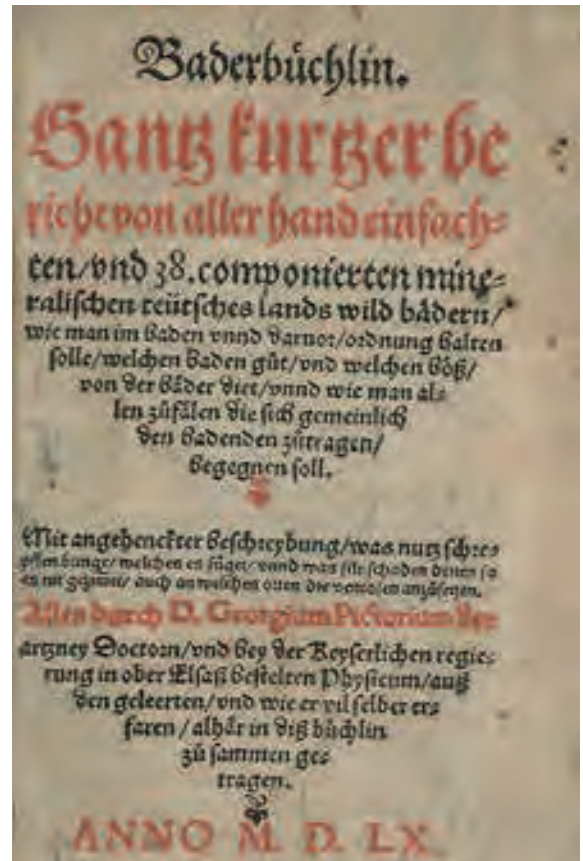 Baderbüchlin.
Gantz kurtzer be
richt von aller hand einfach-
ten/vnd 38.componierten mine-
ralischen teütsches lands wild bädern/
wie man im baden vnnd darnor/ordnung halten
solle/welchen baden güt/vnd welchen böß/
von der bäder diet/vnnd wie man al-
len züfälen die sich gemeinlich
den badenden zütragen/
begegnen soll.
Mit angehenckter beschreybung/was nutz schre-
pffen bringe/welchen es füget/vnnd was für schaden denen so
es nit gezimet/auch an welchen orten die ventosen anzüsetzen.
Alles durch D. Georgium Pictorium der
artzney Doctorn/vnd bey der Keyserlichen regie-
rung in ober Elsaß bestelten Physicum/auß
den geleerten/vnd wie er vil selber er-
faren/alhär in diß büchlin
zü sammen ge-
tragen.
ANNO M. D. LX.